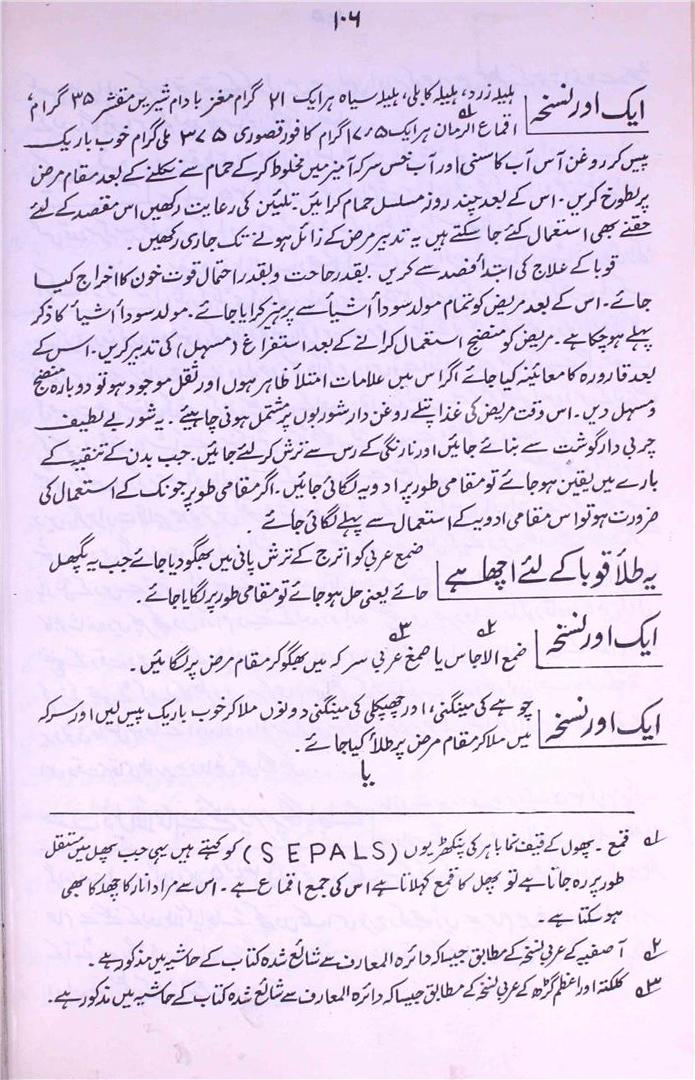 ۱۰۶
ایک اور نسخہ ہلیلہ زرد، ہلیلہ کابلی، ہلیلہ سیاہ ہر ایک ۲۱ گرام مغز بادام شیریں مقشر ۳۵ گرام،
اقماع الرمان ہر ایک ۱۷٫۵ گرام کافور قصوری ۳۷۵ ملی گرام خوب باریک
پیس کر روغن آس آب کاسنی اور آب خس سرکہ آمیز میں مخلوط کر کے حمام سے نکلنے کے بعد مقام مرض
پر لطوخ کریں۔ اس کے بعد چند روز مسلسل حمام کرائیں۔ تلیئن کی رعایت رکھیں اس مقصد کے لئے
حقنے بھی استعمال کئے جا سکتے ہیں یہ تدبیر مرض کے زائل ہونے تک جاری رکھیں۔
قوبا کے علاج کی ابتدأ فصد سے کریں۔ بقدر حاجت وبقدر احتمال قوت خون کا اخراج کیا
جائے۔ اس کے بعد مریض کو تمام مولد سودأ اشیأ سے پرہیز کرایا جائے۔ مولد سودأ اشیأ کا ذکر
پہلے ہوچکا ہے۔ مریض کو منضج استعمال کرانے کے بعد استفراغ (مسہل) کی تدبیر کریں۔ اس کے
بعد قارورہ کا معائینہ کیا جائے اگر اس میں علامات امتلأ ظاہر ہوں اور ثقل موجود ہو تو دوبارہ منضج
و مسہل دیں۔ اس وقت مریض کی غذا پتلے روغن دار شوربوں پر مشتمل ہونی چاہیئے۔ یہ شوربے لطیف
چربی دار گوشت سے بنائے جائیں اور نارنگی کے رس سے ترش کر لئے جائیں۔ جب بدن کے تنقیہ کے
بارے میں یقین ہو جائے تو مقامی طور پر ادویہ لگائی جائیں۔ اگر مقامی طور پر جونک کے استعمال کی
ضرورت ہو تو اس مقامی ادویہ کے استعمال سے پہلے لگائی جائے
یہ طلأ قوبا کے لئے اچھا ہے ضمع عربی کو اترج کے ترش پانی میں بھگو دیا جائے جب یہ پگھل
جائے یعنی حل ہو جائے تو مقامی طور پر لگایا جائے۔
ایک اور نسخہ ضمع الاجاس ۲ یا صمغ عربی ۳ سرکہ میں بھگو کر مقام مرض پر لگائیں۔
ایک اور نسخہ چوہے کی مینگنی، اور چھپکلی کی مینگنی دونوں ملا کر خوب باریک پیس لیں اور سرکہ
میں ملا کر مقام مرض پر طلأ کیا جائے۔
یا
۱ قمع۔ پھول کے قیف نما باہر کی پنکھڑیوں (SEPALS) کو کہتے ہیں یہی جب پھل میں مستقل
طور پر رہ جاتا ہے تو پھل کا قمع کہلاتا ہے اس کی جمع اقماع ہے۔ اس سے مراد انار کا چھلکا بھی
ہو سکتا ہے۔
۲ آصفیہ کے عربی نسخہ کے مطابق جیسا کہ دائرہ المعارف سے شائع شدہ کتاب کے حاشیہ میں مذکور ہے۔
۳ کلکتہ اور اعظم گڑھ کے عربی نسخہ کے مطابق جیسا کہ دائرہ المعارف سے شائع شدہ کتاب کے حاشیہ میں مذکور ہے۔